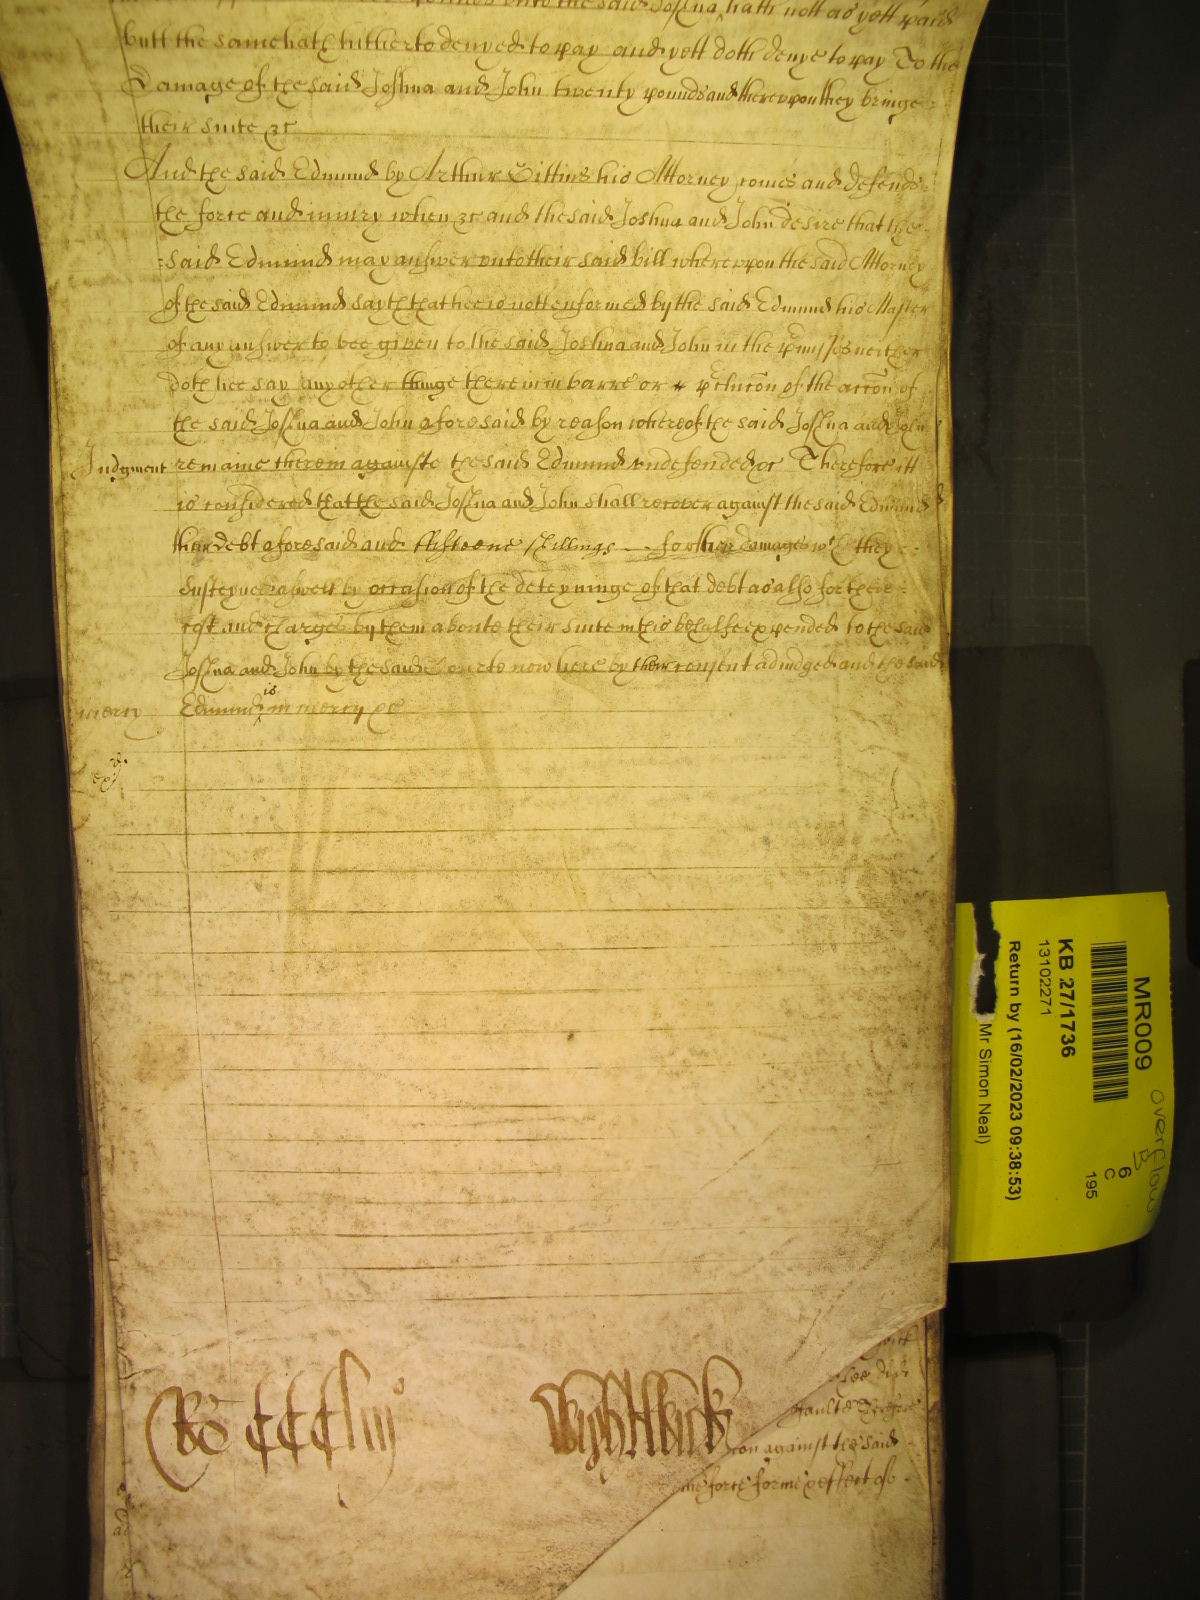 pounds unto the said Joshua hath nott as yett paid
butt the same hath hitherto denyed to pay and yett doth denye to pay To the
Damage of the said Joshua and John twenty pounds and thereupon they bringe
their suite &c
And the said Edmund by Arthur Gittins his Attorney comes and defends
the force and iniury when &c and the said Joshua and John desire that the
said Edmund may answer unto their said bill whereupon the said Attorney
of the said Edmund sayth that hee is nott enformed by the said Edmund his Master
of any answer to bee given to the said Joshua and John in the p'misses neither
doth hee say any other thinge therein in barre or p'clucon of the accon of
the said Joshua and John aforesaid by reason whereof the said Joshua and John
Judgment remaine therein againste the said Edmund undefended &c Therefore itt
is considered that the said Joshua and John shall recover against the said Edmund
their debt aforesaid and ffifteene shillings for their damages wch they
susteyned aswell by occasion of the deteyninge of that debt as also for their
cost and charges by them aboute their suite in this behalfe expended to the said
Joshua and John by the said Courte now here by their consent adiudged and the said
mercy Edmund is in mercy &c
Ro CCCCliiij
Wightwick
con against the said
force forme & effect as
MR009
KB 27/1736
13102271
Return by (16/02/2023 09:38:53)
Mr Simon Neal)
6
C
195
Overflow
B